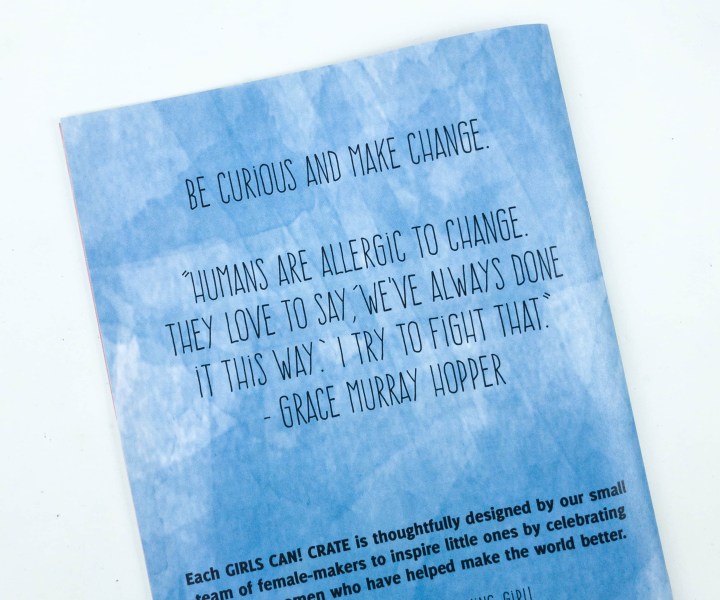 BE CURIOUS AND MAKE CHANGE.
"HUMANS ARE ALLERGIC TO CHANGE.
THEY LOVE TO SAY, 'WE'VE ALWAYS DONE
IT THIS WAY.' I TRY TO FIGHT THAT."
- GRACE MURRAY HOPPER
Each GIRLS CAN! CRATE is thoughtfully designed by our small
team of female-makers to inspire little ones by celebrating
who have helped make the world better.